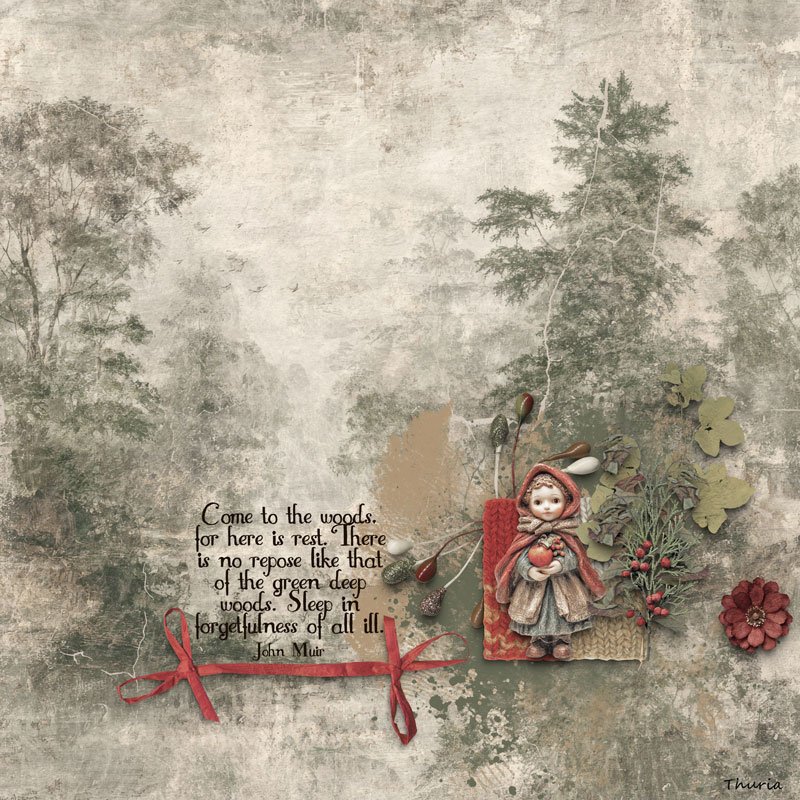 Come to the woods,
for here is rest. There
is no repose like that
of the green deep
woods. Sleep in
forgetfulness of all ill.
John Muir
Thuria